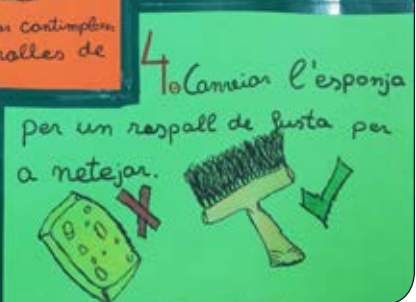 cantimplores
de
4. Canviar l'esponja
per un raspall de fusta per
a netejar.